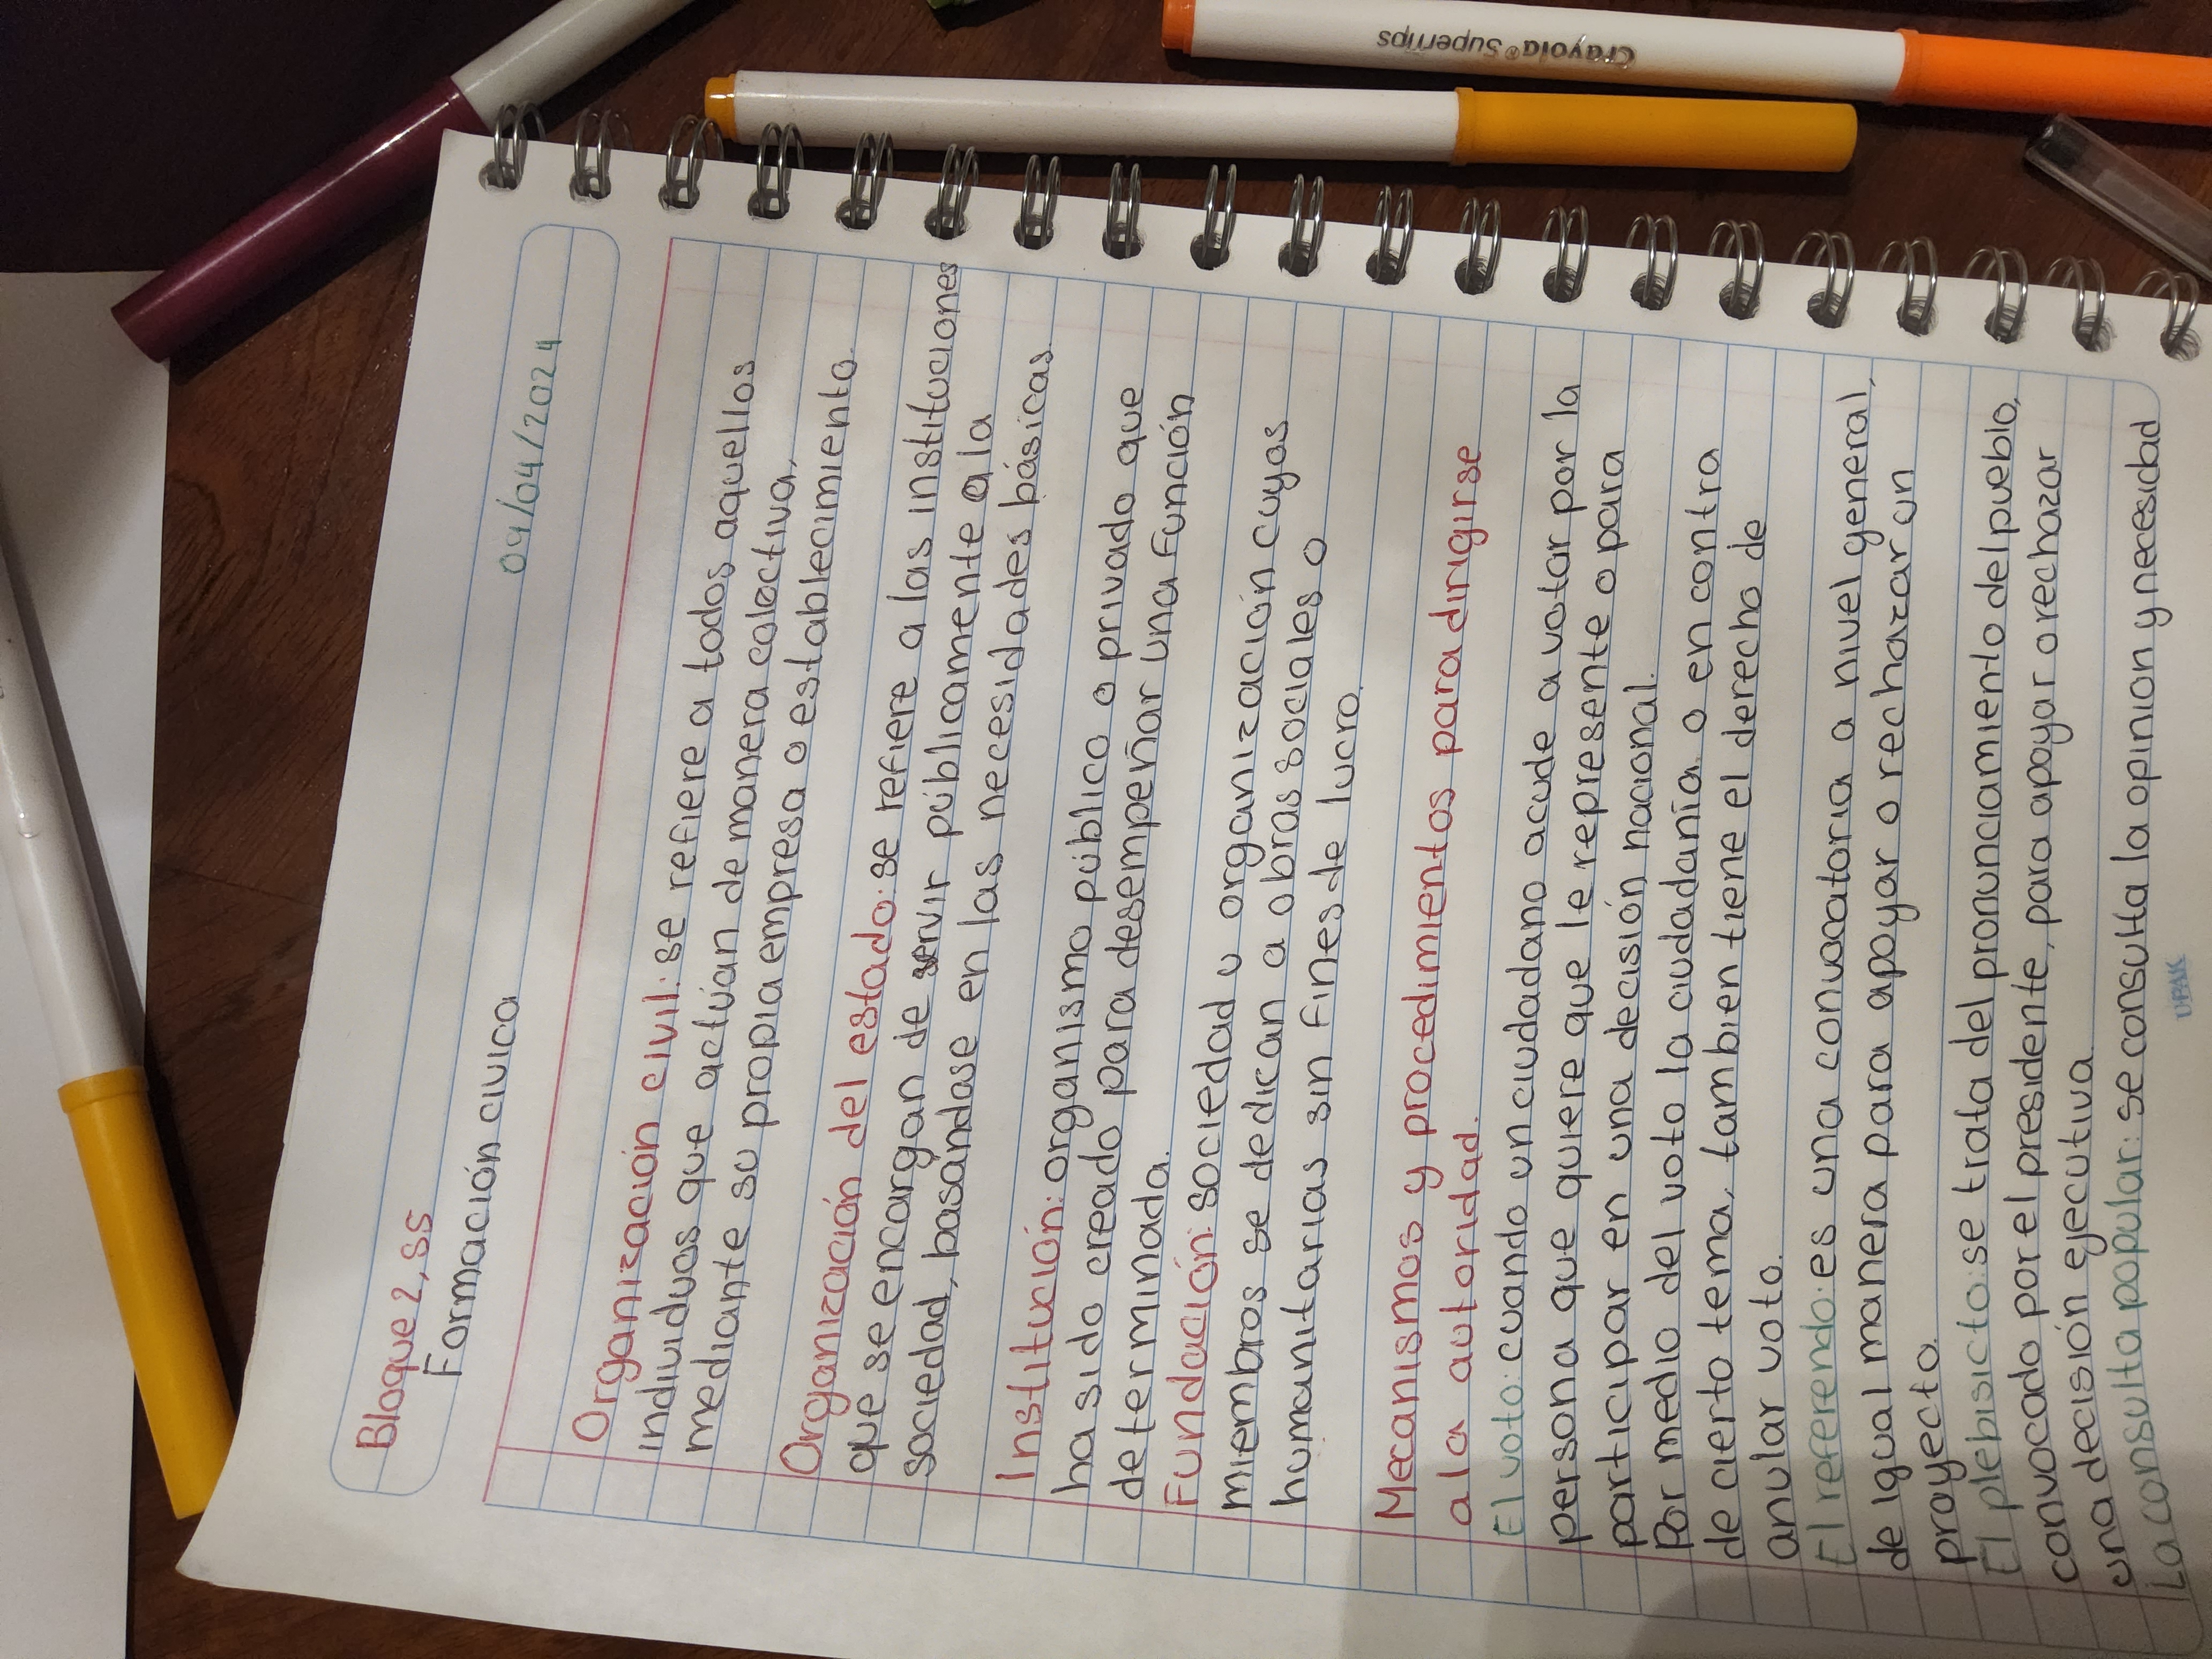 Bloque 2, SS
Formación civica
04/04/2024
Organización civil: se refiere a todos aquellos
individuos que actúan de manera colectiva,
mediante su propia empresa o establecimiento.
Organización del estado: se refiere a las instituciones
que se encargan de servir públicamente a la
sociedad, basandose en las necesidades básicas.
Institución: organismo público o privado que
ha sido creado para desempeñar una función
determinada.
Fundación: sociedad u organización cuyos
miembros se dedican a obras sociales o
humanitarias sin fines de lucro.
Mecanismos y procedimientos para dirigirse
a la autoridad.
El voto: cuando un ciudadano acude a votar por la
persona que quiere que le represente o para
participar en una decisión nacional.
Por medio del voto la ciudadanía o en contra
de cierto tema, tambien tiene el derecho de
anular voto.
El referendo: es una convocatoria a nivel general,
de igual manera para apoyar o rechazar un
proyecto.
El plebisicto: se trata del pronunciamiento del pueblo,
convocado por el presidente, para apoyar o rechazar
una decisión ejecutiva.
La consulta popular: se consulta la opinion y necesidad
Crayola® Supertips